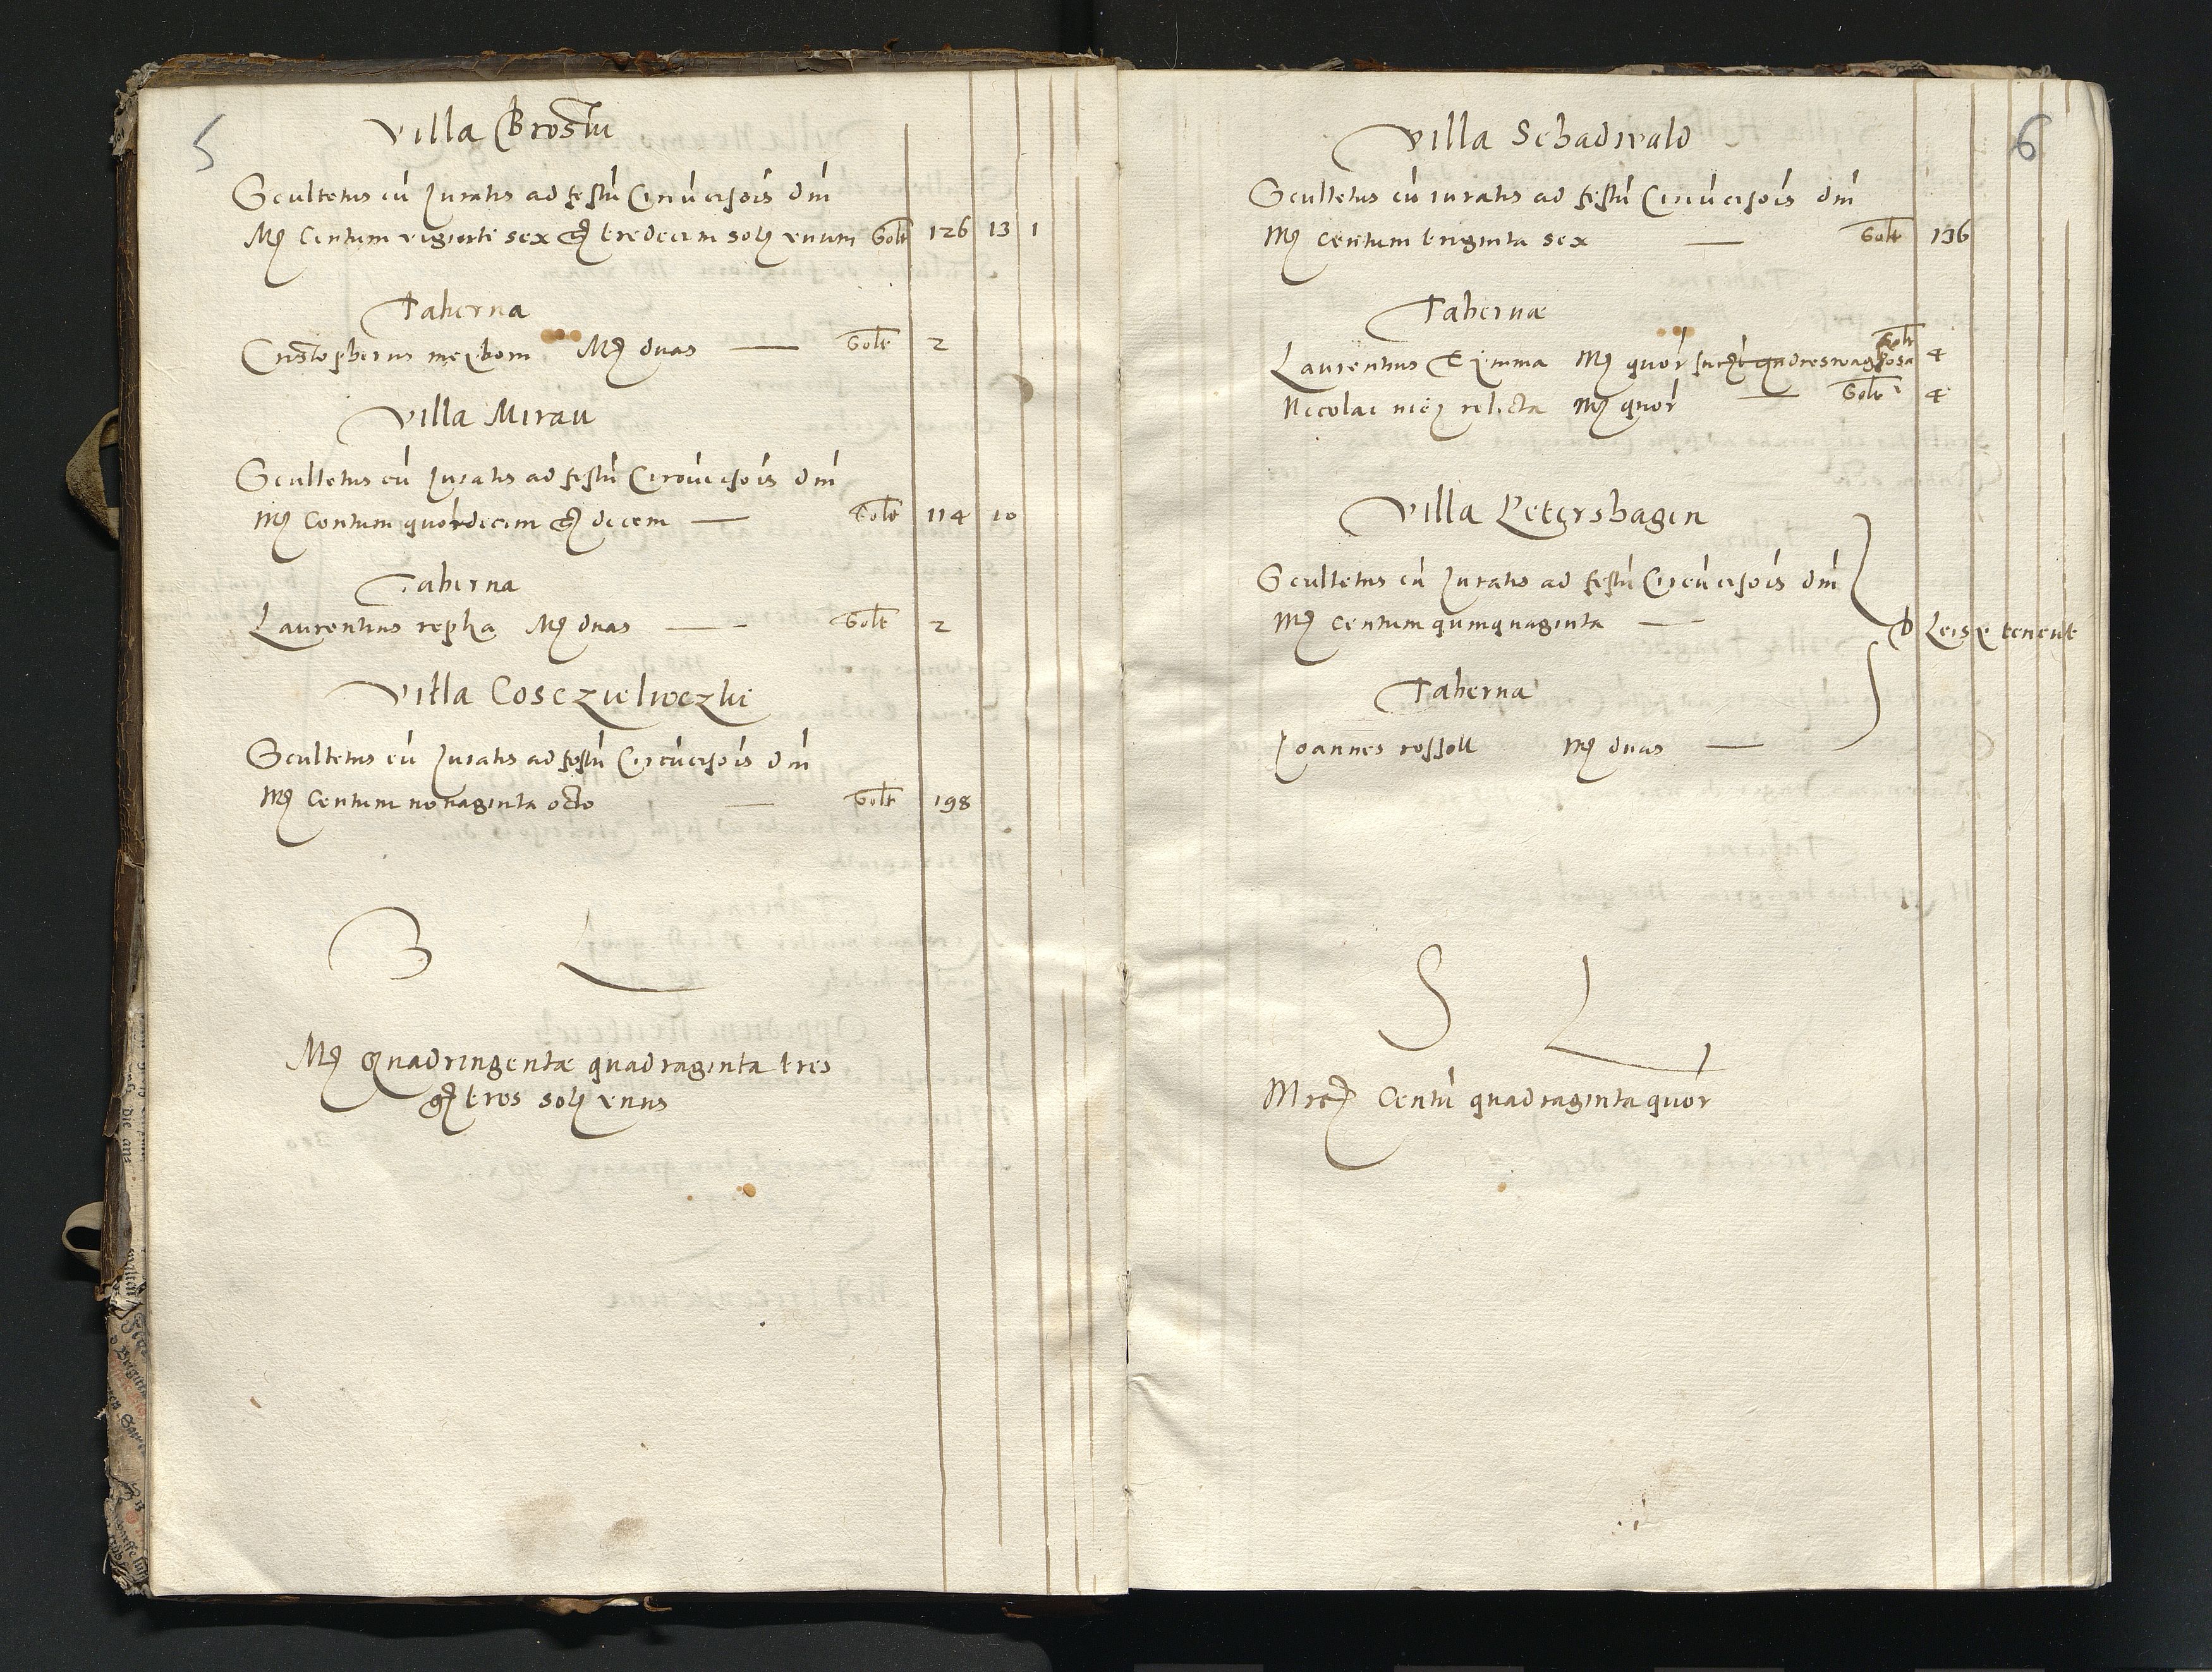 5
Villa Brostu
Scultetus cu Juratis ad festu Circucisois dm
Mr Centum viginti sex gr tredecim sol unum Solt 126 13 1
Taberna
Cristopherus meybom Mr duas — Solt 2
Villa Mirau
Scultetus cu Juratis ad festu Circucisois dm
Mr Centum quordecim gr decem — Solt 114 10
Taberna
Laurentius repka Mr duas — Solt 2
Villa Cosczieliveczke
Scultetus cu Juratis ad festu Circucisois dm
Mr Centum nonaginta octo — Solt 198
S L
Mr Quadringentae quadraginta tres
gr tres sol unus
6
Villa Schadwald
Scultetus cu iuratis ad festu Circucisois dm
Mr Centum triginta sex — Solt 136
Tabernae
Laurentius Mr quor Solt 4
Nicolai relicta Mr quor — Solt 4
Villa Petershagen
Scultetus cu Juratis ad festu Circucisois dm
Mr Centum quinquaginta —
D Leis tenent
Taberna
Joannes rossoll Mr duas —
S L
Mrc Centu quadraginta quor